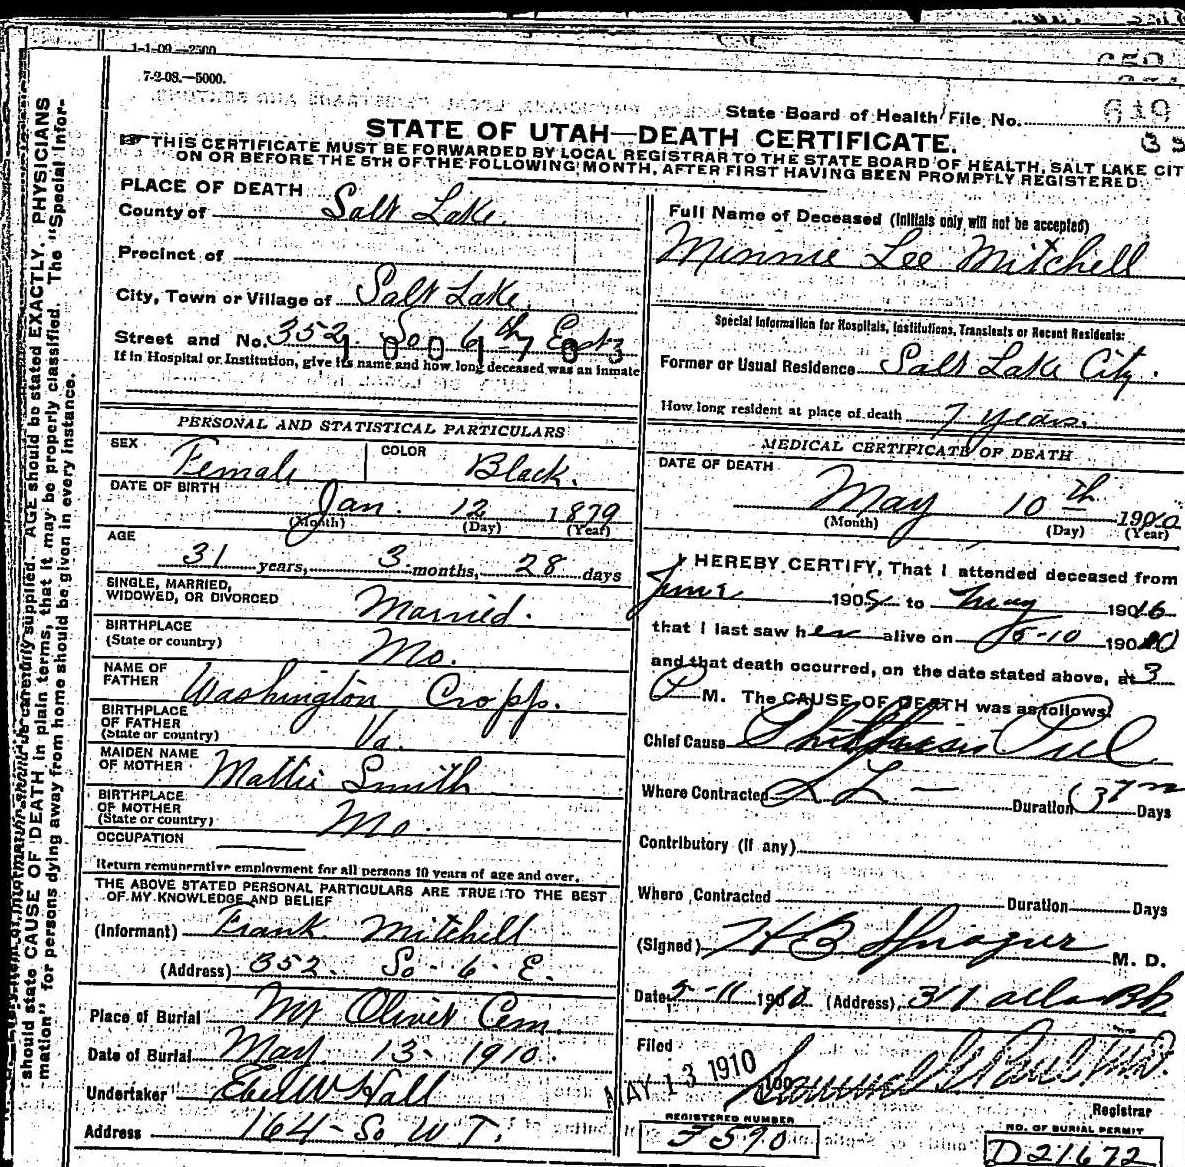 1-1-09.—2500
7-2-08.—5000.
State Board of Health File No. 619
STATE OF UTAH—DEATH CERTIFICATE.
THIS CERTIFICATE MUST BE FORWARDED BY LOCAL REGISTRAR TO THE STATE BOARD OF HEALTH, SALT LAKE CIT
ON OR BEFORE THE 5TH OF THE FOLLOWING MONTH, AFTER FIRST HAVING BEEN PROMPTLY REGISTERED.
should state CAUSE OF DEATH in plain terms, that it may be properly classified. The "Special Infor-
mation" for persons dying away from home should be given in every instance.
supplied. AGE should be stated EXACTLY. PHYSICIANS
PLACE OF DEATH
County of Salt Lake.
Precinct of
City, Town or Village of Salt Lake.
Street and No. 352. So 6th East
1001703
If in Hospital or Institution, give its name and how long deceased was an inmate
PERSONAL AND STATISTICAL PARTICULARS
SEX Female COLOR Black.
DATE OF BIRTH Jan. 12 1879
(Month) (Day) (Year)
AGE
31 years, 3 months, 28 days
SINGLE, MARRIED,
WIDOWED, OR DIVORCED Married.
BIRTHPLACE
(State or country) Mo.
NAME OF
FATHER Washington Cropp.
BIRTHPLACE
OF FATHER
(State or country) Va.
MAIDEN NAME
OF MOTHER Mattie Smith
BIRTHPLACE
OF MOTHER
(State or country) Mo.
OCCUPATION
Return remunerative employment for all persons 10 years of age and over.
THE ABOVE STATED PERSONAL PARTICULARS ARE TRUE TO THE BEST
OF MY KNOWLEDGE AND BELIEF
(Informant) Frank Mitchell
(Address) 352. So - 6. E.
Place of Burial Mt Olivet Cem.
Date of Burial May 13- 1910.
Undertaker Eber W Hall
Address 164- So W T.
Full Name of Deceased (Initials only will not be accepted)
Minnie Lee Mitchell
Special Information for Hospitals, Institutions, Transients or Recent Residents:
Former or Usual Residence Salt Lake City.
How long resident at place of death 7 years.
MEDICAL CERTIFICATE OF DEATH
DATE OF DEATH
May 10th 1910
(Month) (Day) (Year)
I HEREBY CERTIFY, That I attended deceased from
June 190 to May 1910
that I last saw her alive on 5-10 1910
and that death occurred, on the date stated above, at 3
P M. The CAUSE OF DEATH was as follows:
Chief Cause Phthisis Pul
Where Contracted S L — Duration Days
Contributory (If any)
Where Contracted Duration Days
(Signed) H B Sprague M. D.
Date 5-11 1910 (Address) 311 Atlas Bk
Filed MAY 13 1910 190
Registrar
REGISTERED NUMBER
F590
NO. OF BURIAL PERMIT
D21672